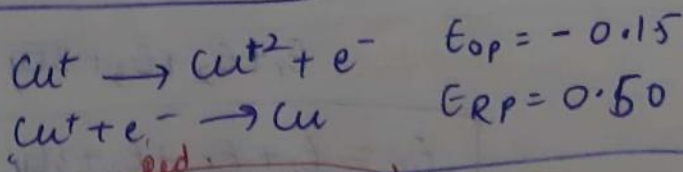 Cu⁺ → Cu⁺² + e⁻ Eop = - 0.15
Cu⁺ + e⁻ → Cu ERP = 0.50